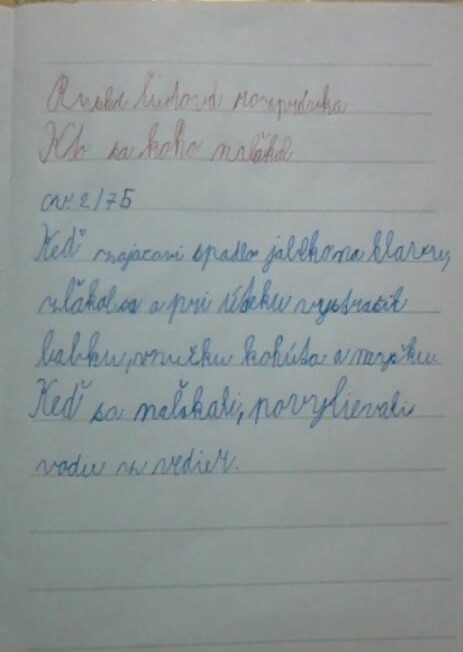 Ruská ľudová rozprávka
Kto sa koho naľakal
cv. 2/75
Keď zajacovi spadlo jablko na hlavu,
zľakol sa a pri úteku vystrašil
babku, vnučku kohúta a myšku.
Keď sa naľakali, povylievali
vodu z vedier.